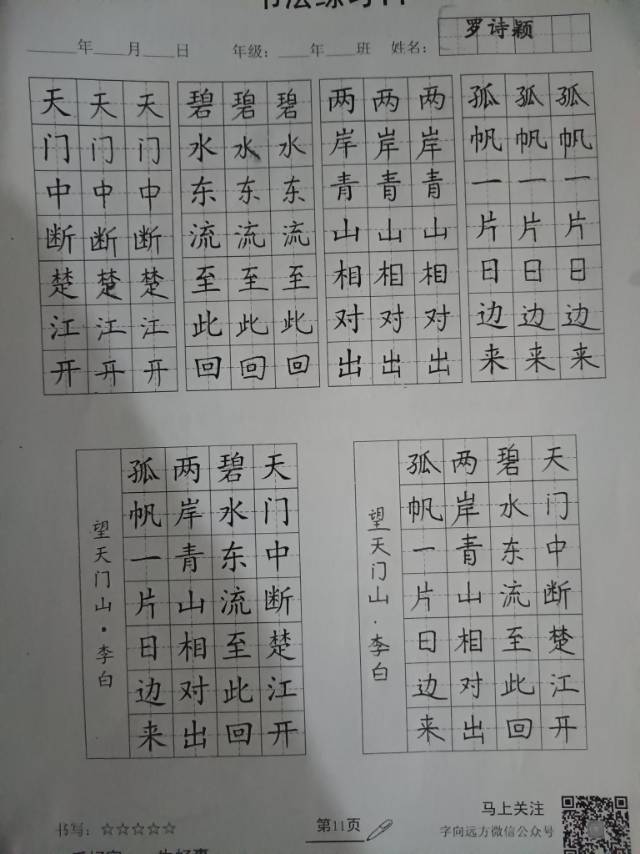 书法练习纸
____年____月____日 年级：____年____班 姓名：罗诗颖
天天天 碧碧碧 两两两 孤孤孤
门门门 水水水 岸岸岸 帆帆帆
中中中 东东东 青青青 一一一
断断断 流流流 山山山 片片片
楚楚楚 至至至 相相相 日日日
江江江 此此此 对对对 边边边
开开开 回回回 出出出 来来来
天门中断楚江开
碧水东流至此回
两岸青山相对出
孤帆一片日边来
望天门山·李白
天门中断楚江开
碧水东流至此回
两岸青山相对出
孤帆一片日边来
望天门山·李白
书写：☆☆☆☆☆
第11页
马上关注
字向远方微信公众号